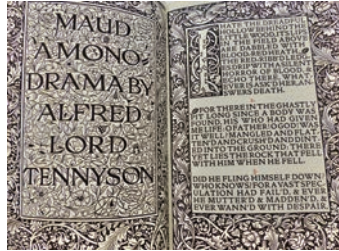 MAUD
A MONO-
DRAMA BY
ALFRED
LORD
TENNYSON
I HATE THE DREADFUL
HOLLOW BEHIND THE
LITTLE WOOD, ITS LIPS
IN THE FIELD ABOVE
ARE DABBLED WITH
BLOOD-RED HEATH,
THE RED-RIBB'D LEDGES
DRIP WITH A SILENT
HORROR OF BLOOD,
ECHO THERE, WHAT-
EVER IS ASK'D HER, AN-
SWERS DEATH.
FOR THERE IN THE GHASTLY
PIT LONG SINCE A BODY WAS
FOUND, HIS WHO HAD GIVEN
ME LIFE. O FATHER! O GOD! WAS
IT WELL? MANGLED AND FLAT-
TEN'D AND CRUSH'D AND DINT-
ED INTO THE GROUND: THERE
YET LIES THE ROCK THAT FELL
WITH HIM WHEN HE FELL.
DID HE FLING HIMSELF DOWN?
WHO KNOWS? FOR A VAST SPEC-
ULATION HAD FAIL'D, & EVER
HE MUTTER'D & MADDEN'D, &
EVER WANN'D WITH DESPAIR,